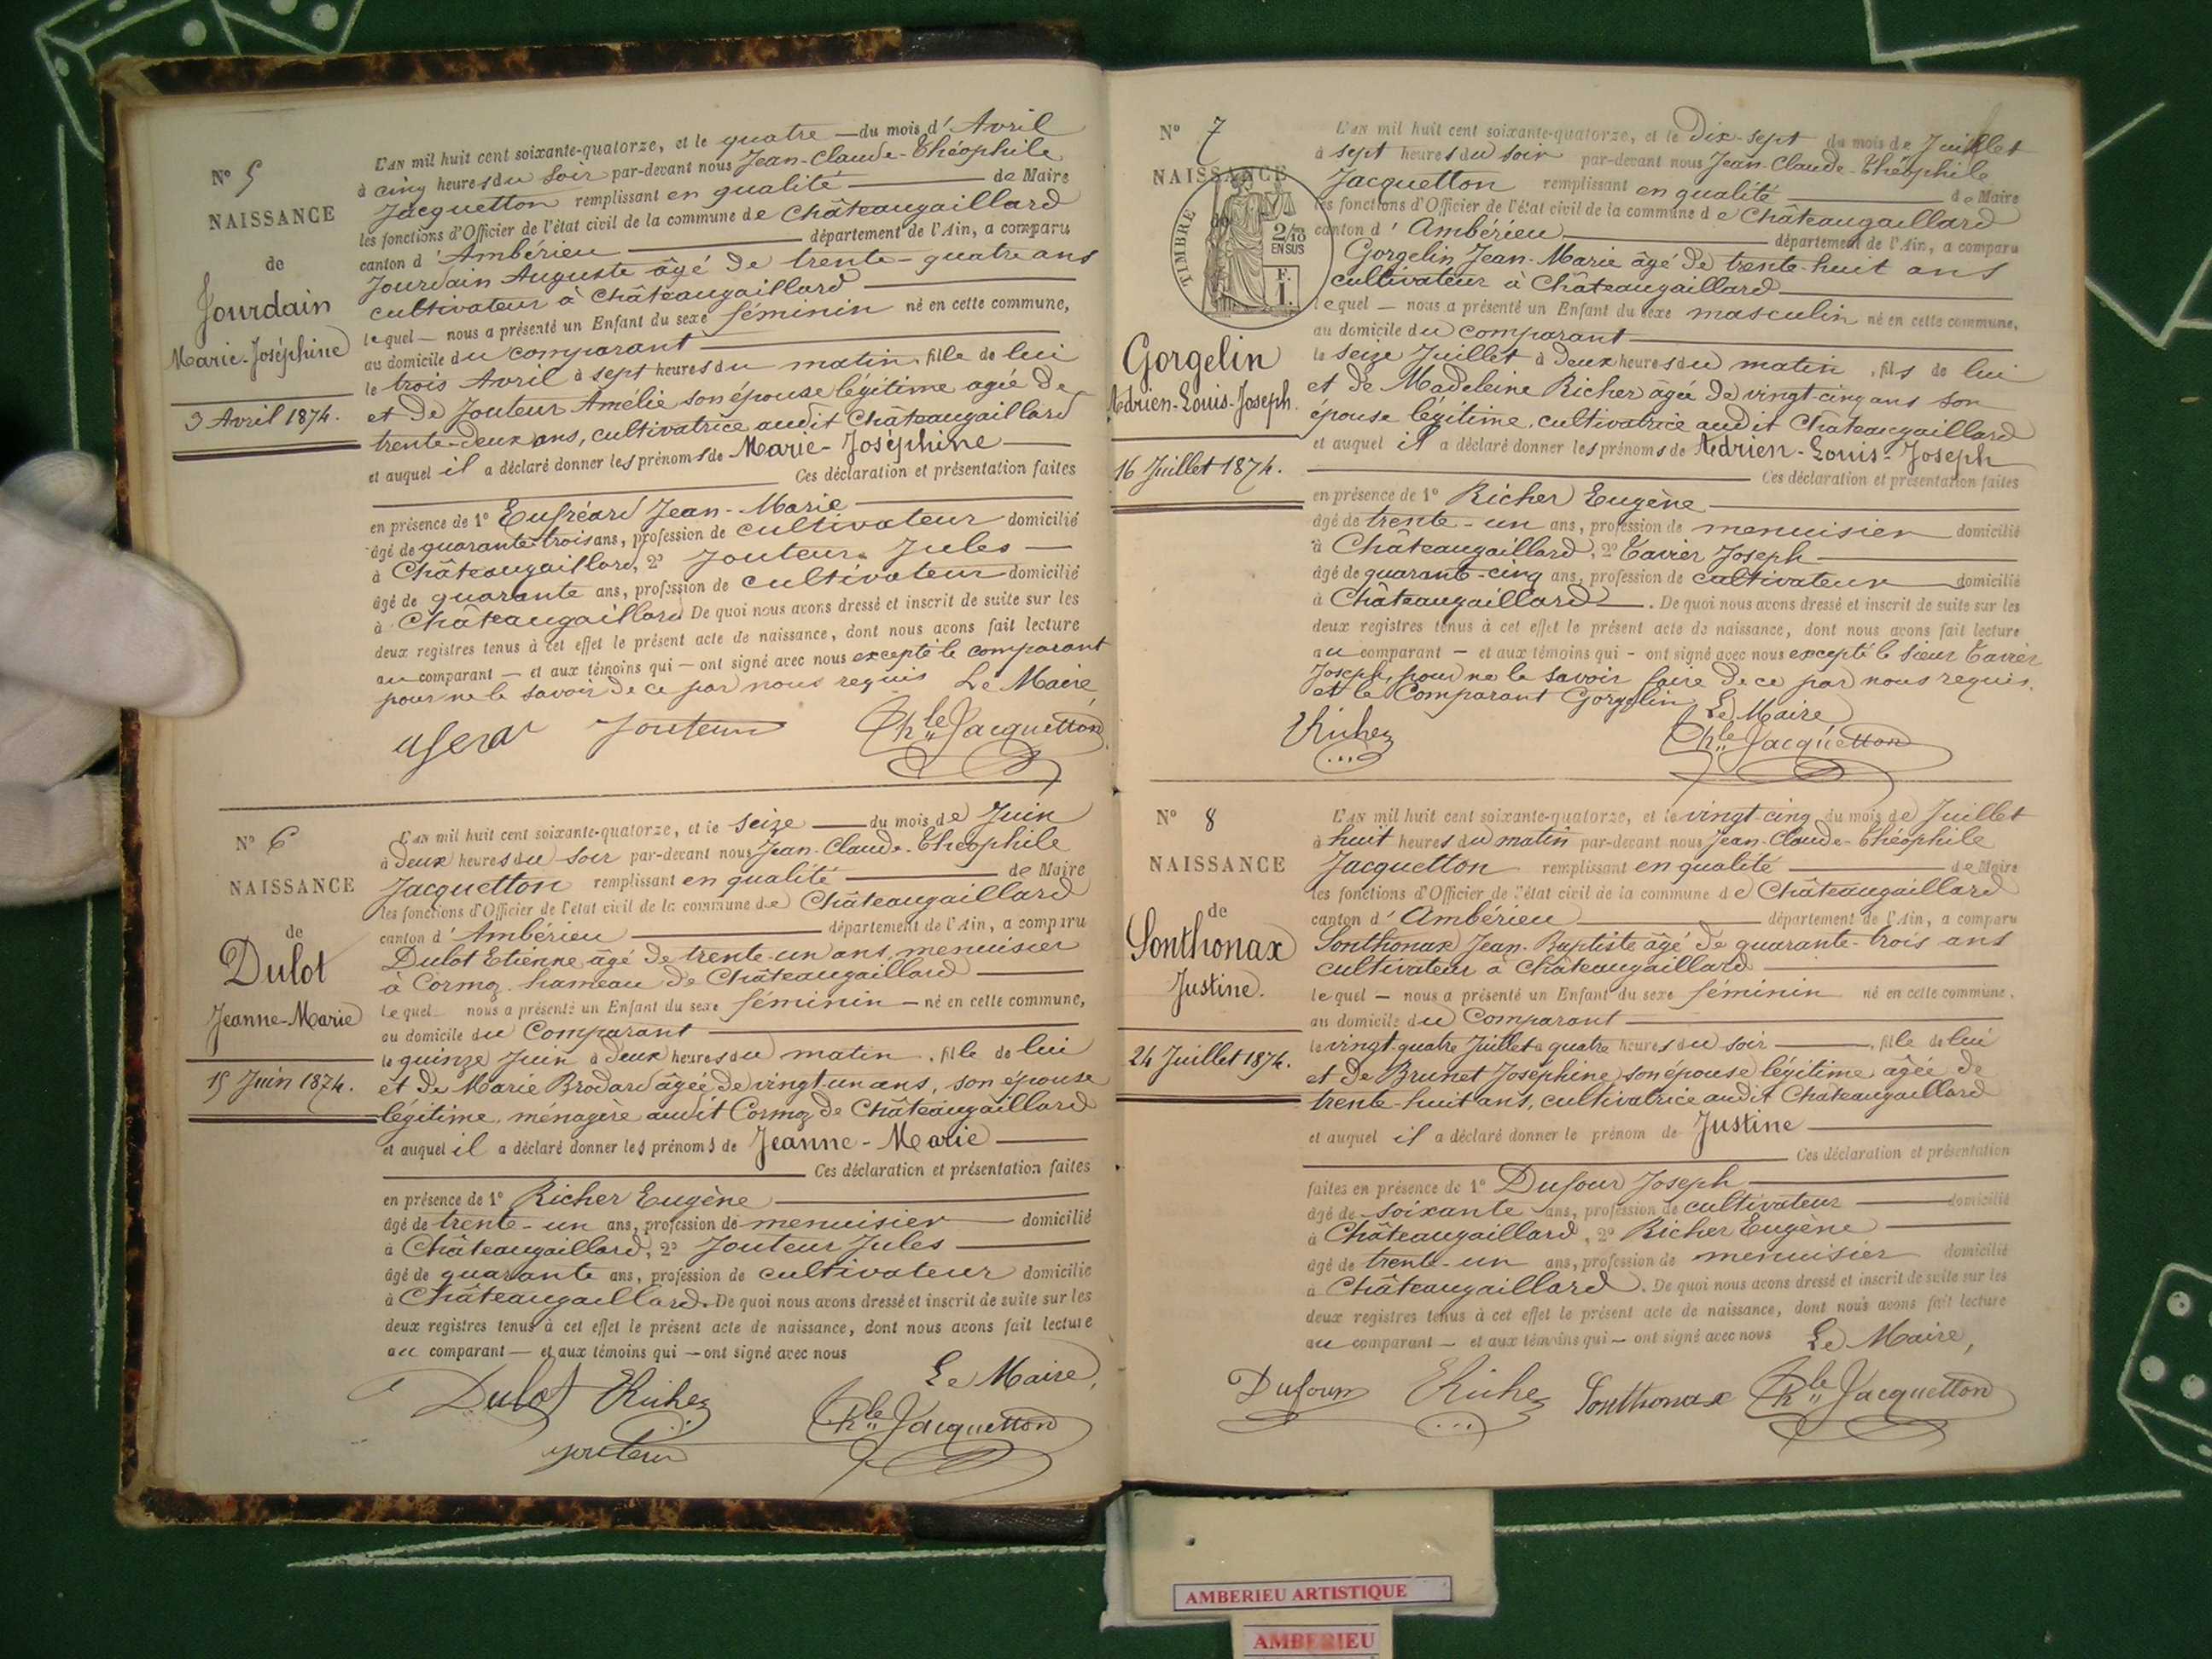 N° 5
NAISSANCE
de
Jourdain
Marie-Joséphine
3 Avril 1874.
L'AN mil huit cent soixante-quatorze, et le quatre — du mois d'Avril
à cinq heures du soir par-devant nous Jean-Claude-Théophile
Jacquetton remplissant en qualité — de Maire
les fonctions d'Officier de l'état civil de la commune de Châteaugaillard
canton d'Ambérieu — département de l'Ain, a comparu
Jourdain Auguste âgé de trente-quatre ans
cultivateur à Châteaugaillard —
lequel — nous a présenté un Enfant du sexe féminin né en cette commune,
au domicile du comparant —
le trois Avril à sept heures du matin, fille de lui
et de Jouteur Amélie son épouse légitime agée de
trente-deux ans, cultivatrice audit Châteaugaillard
et auquel il a déclaré donner les prénoms de Marie-Joséphine —
— Ces déclaration et présentation faites
en présence de 1° Eufréard Jean-Marie —
âgé de quarante-trois ans, profession de cultivateur domicilié
à Châteaugaillard, 2° Jouteur Jules —
âgé de quarante ans, profession de cultivateur domicilié
à Châteaugaillard De quoi nous avons dressé et inscrit de suite sur les
deux registres tenus à cet effet le présent acte de naissance, dont nous avons fait lecture
au comparant — et aux témoins qui — ont signé avec nous excepté le comparant
pour ne le savoir de ce par nous requis Le Maire
Jouteur Th.le Jacquetton
N° 6
NAISSANCE
de
Dulot
Jeanne-Marie
15 Juin 1874.
L'AN mil huit cent soixante-quatorze, et le seize — du mois de Juin
à deux heures du soir par-devant nous Jean-Claude-Théophile
Jacquetton remplissant en qualité — de Maire
les fonctions d'Officier de l'état civil de la commune de Châteaugaillard
canton d'Ambérieu — département de l'Ain, a comparu
Dulot Etienne âgé de trente-un ans, menuisier
à Cormoz hameau de Châteaugaillard —
lequel nous a présenté un Enfant du sexe féminin — né en cette commune,
au domicile du Comparant —
le quinze Juin à deux heures du matin, fille de lui
et de Marie Brodard âgée de vingt un ans, son épouse
légitime, ménagère audit Cormoz de Châteaugaillard
et auquel il a déclaré donner les prénoms de Jeanne-Marie —
— Ces déclaration et présentation faites
en présence de 1° Richer Eugène —
âgé de trente-un ans, profession de menuisier — domicilié
à Châteaugaillard, 2° Jouteur Jules —
âgé de quarante ans, profession de cultivateur domicilié
à Châteaugaillard. De quoi nous avons dressé et inscrit de suite sur les
deux registres tenus à cet effet le présent acte de naissance, dont nous avons fait lecture
au comparant — et aux témoins qui — ont signé avec nous
Le Maire,
Dulot ERicher Th.le Jacquetton
Jouteur
N° 7
NAISSANCE
de
TIMBRE
2/10
EN SUS
F.
1.
Gorgelin
Adrien-Louis-Joseph.
16 Juillet 1874.
L'AN mil huit cent soixante-quatorze, et le Dix-sept du mois de Juillet
à sept heures du soir par-devant nous Jean-Claude-Théophile
Jacquetton remplissant en qualité — de Maire
les fonctions d'Officier de l'état civil de la commune de Châteaugaillard
canton d'Ambérieu — département de l'Ain, a comparu
Gorgelin Jean-Marie âgé de trente-huit ans
cultivateur à Châteaugaillard —
lequel — nous a présenté un Enfant du sexe masculin né en cette commune,
au domicile du comparant —
le seize Juillet à deux heures du matin, fils de lui
et de Madeleine Richer âgée de vingt-cinq ans son
épouse légitime, cultivatrice audit Châteaugaillard
et auquel il a déclaré donner les prénoms de Adrien-Louis-Joseph
— Ces déclaration et présentation faites
en présence de 1° Richer Eugène —
âgé de trente-un ans, profession de menuisier domicilié
à Châteaugaillard, 2° Tavier Joseph —
âgé de quarante-cinq ans, profession de cultivateur domicilié
à Châteaugaillard —. De quoi nous avons dressé et inscrit de suite sur les
deux registres tenus à cet effet le présent acte de naissance, dont nous avons fait lecture
au comparant — et aux témoins qui - ont signé avec nous excepté le sieur Tavier
Joseph, pour ne le savoir faire de ce par nous requis.
et le Comparant Gorgelin Le Maire
ERicher Th.le Jacquetton
N° 8
NAISSANCE
de
Sonthonax
Justine.
24 Juillet 1874.
L'AN mil huit cent soixante-quatorze, et le vingt-cinq du mois de Juillet
à huit heures du matin par-devant nous Jean-Claude-Théophile
Jacquetton remplissant en qualité — de Maire
les fonctions d'Officier de l'état civil de la commune de Châteaugaillard
canton d'Ambérieu — département de l'Ain, a comparu
Sonthonax Jean-Baptiste âgé de quarante-trois ans
cultivateur à Châteaugaillard —
lequel — nous a présenté un Enfant du sexe féminin né en cette commune,
au domicile du Comparant —
le vingt-quatre Juillet à quatre heures du soir —, fille de lui
et de Brunet Joséphine son épouse légitime âgée de
trente-huit ans, cultivatrice audit Châteaugaillard
et auquel il a déclaré donner le prénom de Justine —
— Ces déclaration et présentation
faites en présence de 1° Dufour Joseph —
âgé de soixante ans, profession de cultivateur — domicilié
à Châteaugaillard, 2° Richer Eugène —
âgé de trente-un ans, profession de menuisier domicilié
à Châteaugaillard. De quoi nous avons dressé et inscrit de suite sur les
deux registres tenus à cet effet le présent acte de naissance, dont nous avons fait lecture
au comparant — et aux témoins qui — ont signé avec nous Le Maire,
Dufour ERicher Sonthonax Th.le Jacquetton
AMBERIEU ARTISTIQUE
AMBERIEU